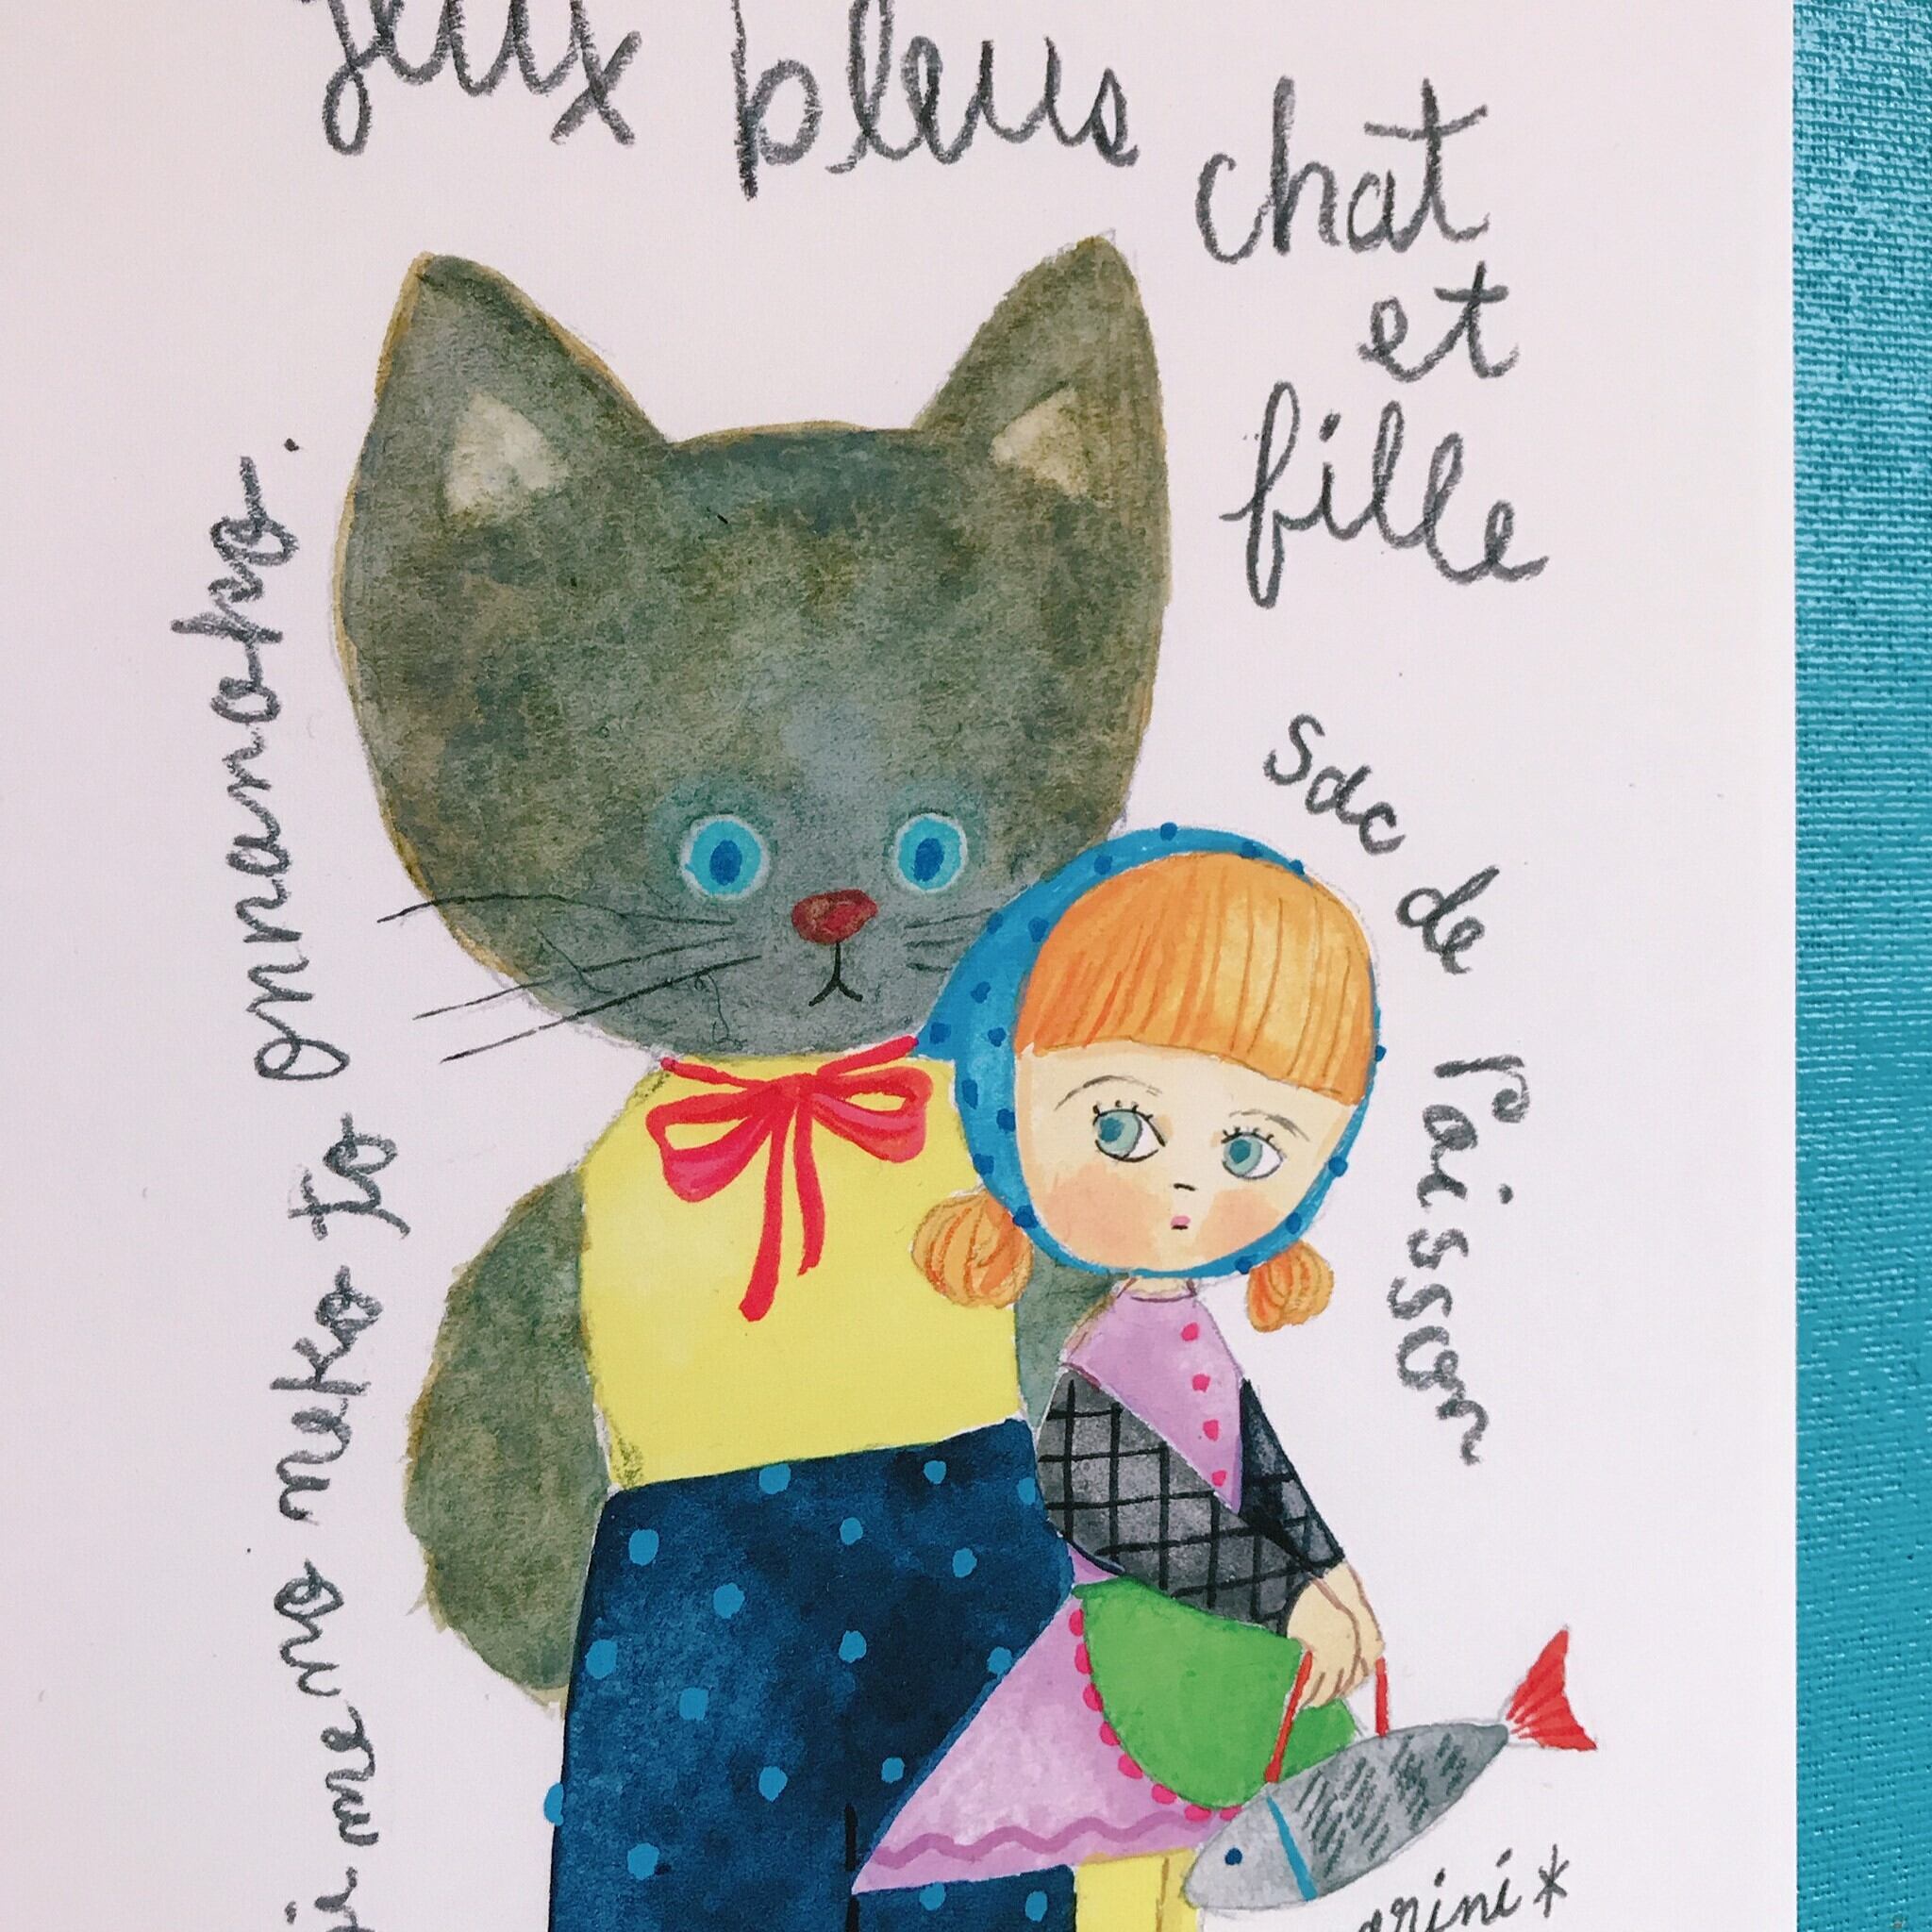 jeux bleus
chat
et
fille
sac de
poisson
me no neko to onnanoko.